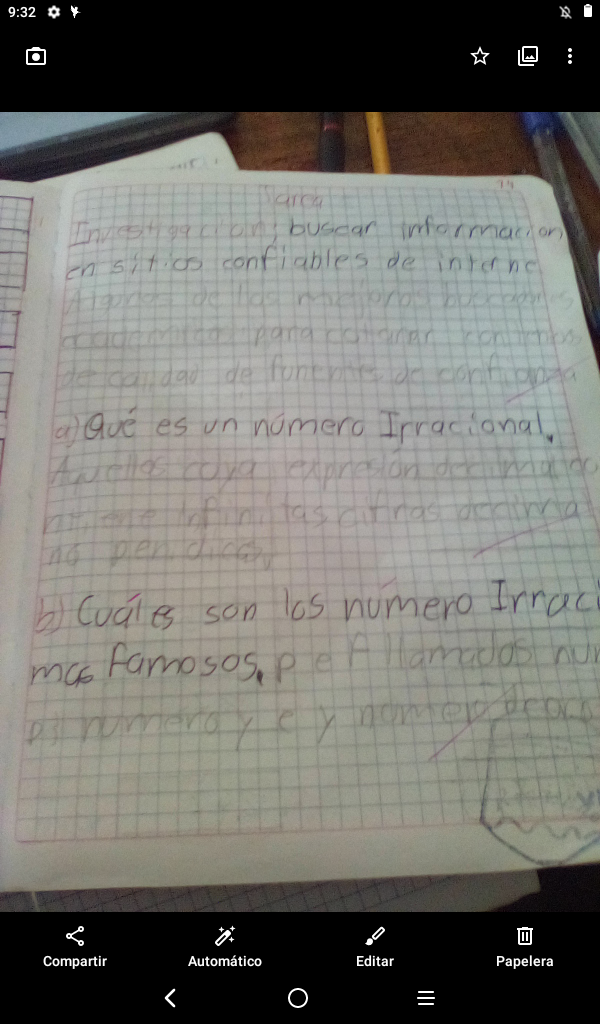 9:32
14
Tarea
Investigacion; buscar informacion
en sitios confiables de interne
Algunos de los mejores buscadores
academico para obtener contenidos
de calidad de fuentes de confianza
a) Qué es un número Irracional.
Aquellos cuya expresión decimal no
infinitas cifras decima
no periodicas,
b) Cuáles son los número Irraci
mas famosos. p e f llamados num
pi numero y e y número
Compartir
Automático
Editar
Papelera